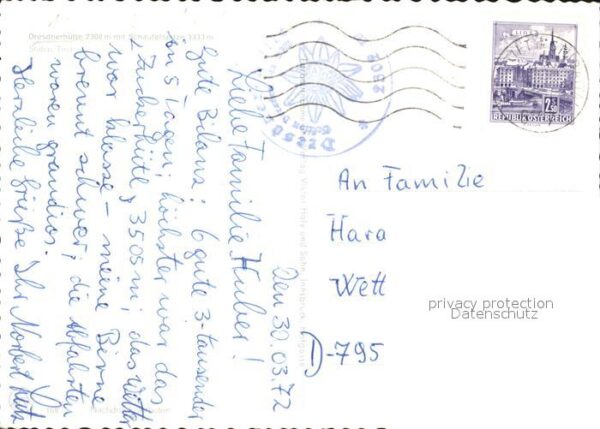 Dresdnerhütte 2308 m mit Schaufelspitze 3333 m
Stubai, Tirol
Den 30.03.72
Liebe Familie Huber!
Gute Bilanz: 6 gute 3-tausender
in 5 Tagen; höchster war das
Zuckerhütl 3505 m; das Wetter
war klasse - meine Birne
brennt schwer; die Abfahrten
waren grandios.
Herzliche Grüße Ihr Norbert
2302
Dresd
Sektion
LINZ
2.50
REPUBLIK ÖSTERREICH
An Familie
Hara
Wett
D-795
privacy protection
Datenschutz